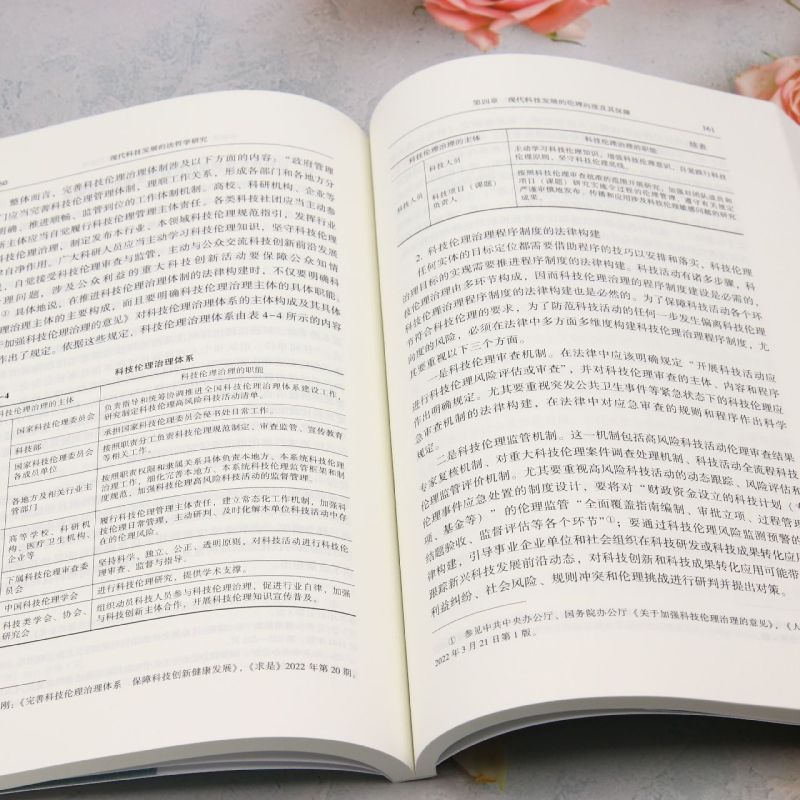 60
现代科技发展的法哲学研究
整体而言，完善科技伦理治理体制涉及以下方面的内容：“政府管理
门应当完善科技伦理管理体制，理顺工作关系，形成各部门和各地方分
明确、推进顺畅、监管到位的工作体制机制。高校、科研机构、企业等
新主体应当自觉履行科技伦理管理主体责任。各类科技社团应当主动参
科技伦理治理，制定发布本行业、本领域科技伦理规范指引，发挥行业
律自净作用。广大科研人员应当主动学习科技伦理知识，坚守科技伦理
，自觉接受科技伦理审查与监管，主动与公众交流科技创新前沿发展
理问题，涉及公众利益的重大科技创新活动要保障公众知情
① 具体地说，在推进科技伦理治理体制的法律构建时，不仅要明确科
理治理主体的主要构成，而且要明确科技伦理治理主体的具体职能。
加强科技伦理治理的意见》对科技伦理治理体系的主体构成及其具体
作出了规定。依据这些规定，科技伦理治理体系由表4-4所示的内容
-4
科技伦理治理体系
科技伦理治理的主体
科技伦理治理的职能
国家科技伦理委员会
负责指导和统筹协调推进全国科技伦理治理体系建设工作，
研究制定科技伦理高风险科技活动清单。
科技部
承担国家科技伦理委员会秘书处日常工作。
国家科技伦理委员会
各成员单位
按照职责分工负责科技伦理规范制定、审查监管、宣传教育
等相关工作。
各地方及相关行业主
管部门
按照职责权限和隶属关系具体负责本地方、本系统科技伦理
治理工作，细化完善本地方、本系统科技伦理监管框架和制
度规范，加强科技伦理高风险科技活动的监督管理。
高等学校、科研机
构、医疗卫生机构、
企业等
履行科技伦理管理主体责任，建立常态化工作机制，加强科
技伦理日常管理，主动研判、及时化解本单位科技活动中存
在的伦理风险。
下属科技伦理审查委
员会
坚持科学、独立、公正、透明原则，对科技活动进行科技伦
理审查、监督与指导。
中国科技伦理学会
进行科技伦理研究，提供学术支撑。
科技类学会、协会、
研究会
组织动员科技人员参与科技伦理治理，促进行业自律，加强
与科技创新主体合作，开展科技伦理知识宣传普及。
刚：《完善科技伦理治理体系 保障科技创新健康发展》，《求是》2022年第20期。
第四章 现代科技发展的伦理向度及其保障
161
续表
科技伦理治理的主体
科技伦理治理的职能
科技人员
科技人员
主动学习科技伦理知识，增强科技伦理意识，自觉践行科技
伦理原则，坚守科技伦理底线。
科技项目（课题）
负责人
按照科技伦理审查批准的范围开展研究，加强对团队成员和
项目（课题）研究实施全过程的伦理管理，遵守有关规定
严谨审慎地发布、传播和应用涉及科技伦理敏感问题的研究
成果。
2. 科技伦理治理程序制度的法律构建
任何实体的目标定位都需要借助程序的技巧以安排和落实，科技伦理
治理目标的实现需要推进程序制度的法律构建。科技活动有诸多步骤，科
技伦理治理由多环节构成，因而科技伦理治理的程序制度建设是必需的，
科技伦理治理程序制度的法律构建也是必然的。为了保障科技活动各个环
节符合科技伦理的要求，为了防范科技活动的任何一步发生偏离科技伦理
向度的风险，必须在法律中多方面多维度构建科技伦理治理程序制度，尤
其要重视以下三个方面。
一是科技伦理审查机制。在法律中应该明确规定“开展科技活动应
进行科技伦理风险评估或审查”，并对科技伦理审查的主体、内容和程序
作出明确规定。尤其要重视突发公共卫生事件等紧急状态下的科技伦理应
急审查机制的法律构建，在法律中对应急审查的规则和程序作出科学
规定。
二是科技伦理监管机制。这一机制包括高风险科技活动伦理审查结果
专家复核机制、对重大科技伦理案件调查处理机制、科技活动全流程科技
伦理监管评价机制。尤其要重视高风险科技活动的动态跟踪、风险评估和
伦理事件应急处置的制度设计，要将对“财政资金设立的科技计划（
项、基金等）”的伦理监管“全面覆盖指南编制、审批立项、过程管理
结题验收、监督评估等各个环节”①；要通过科技伦理风险监测预警的
律构建，引导事业企业单位和社会组织在科技研发或科技成果转化应用
跟踪新兴科技发展前沿动态，对科技创新和科技成果转化应用可能带
利益纠纷、社会风险、规则冲突和伦理挑战进行研判并提出对策。
① 参见中共中央办公厅、国务院办公厅《关于加强科技伦理治理的意见》，《人
2022年3月21日第1版。